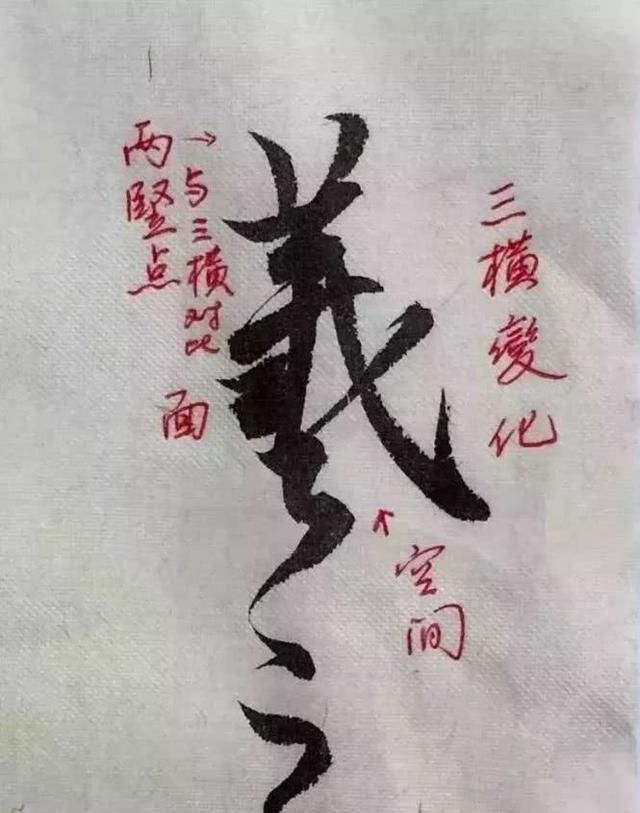 羲之
三横變化
两竖点
→与三横对比
面
空间